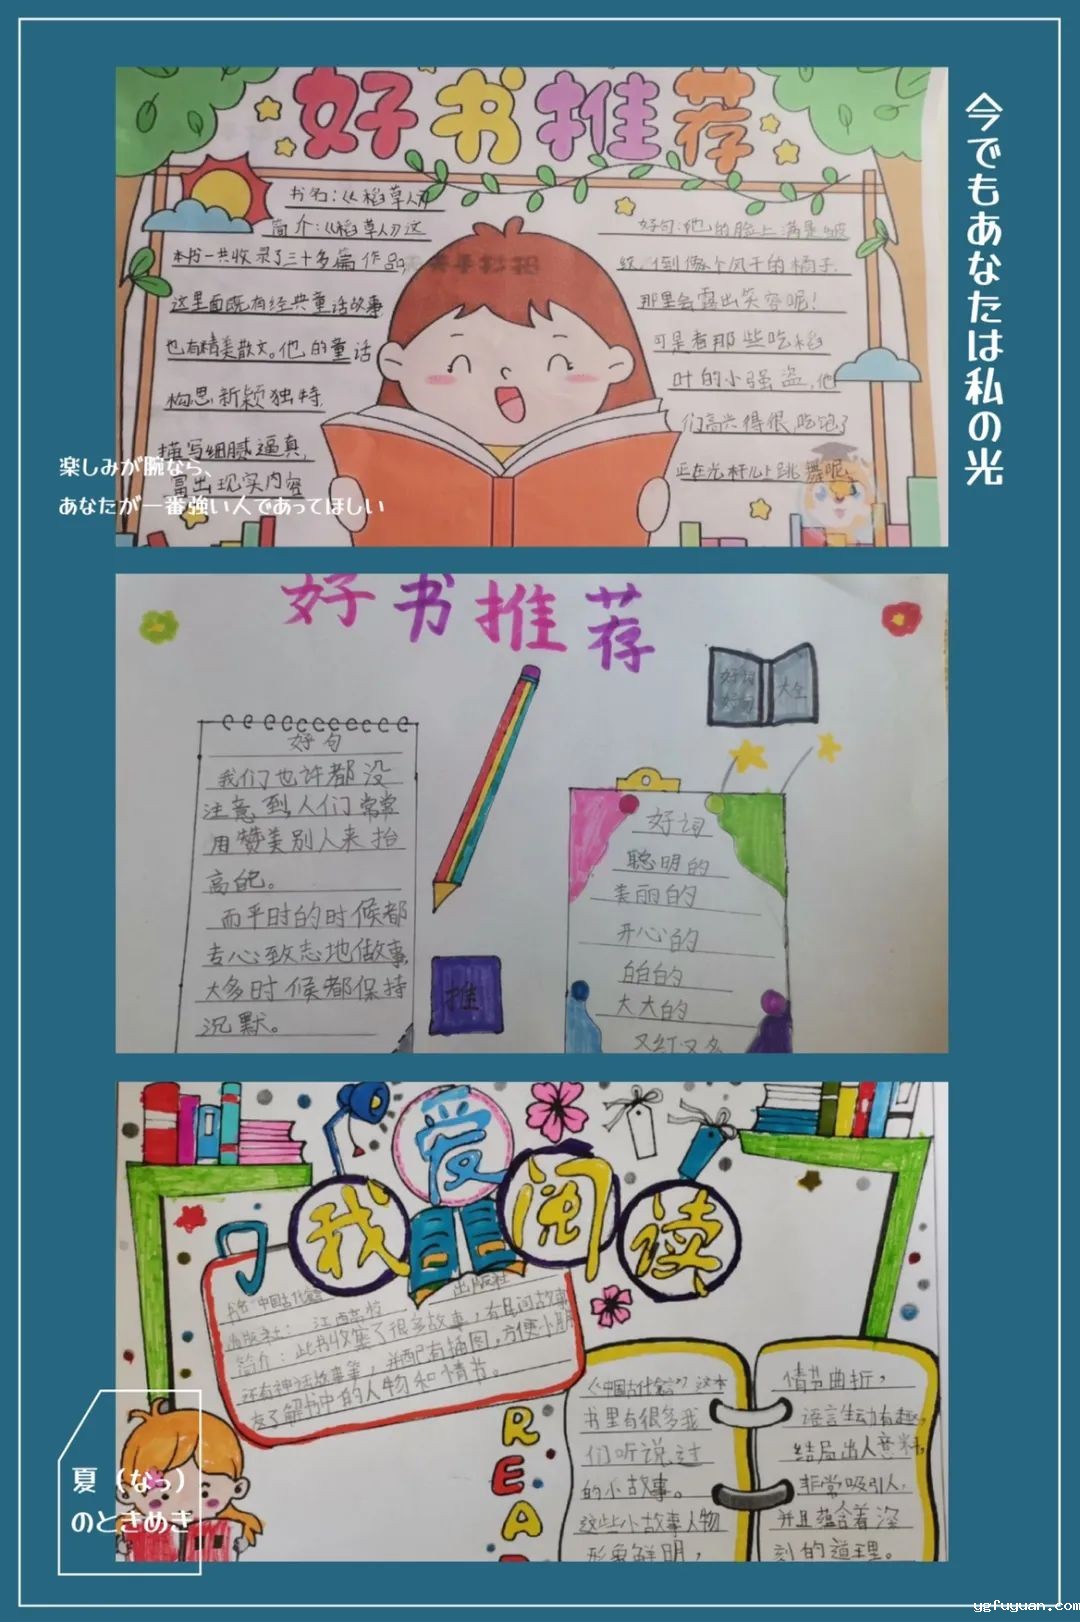 今でもあなたは私の光
好书推荐
书名:《稻草人》
简介:《稻草人》这
本书一共收录了三十多篇作品
这里面既有经典童话故事
也有精美散文。他的童话
构思新颖独特,
描写细腻逼真,
富出现实内容
好句:他的脸上满是皱
纹,倒像个风干的橘子,
那里会露出笑容呢!
可是看那些吃稻
叶的小强盗,他
们高兴得很,吃饱了
正在光秆儿上跳舞呢,
楽しみが腕なら、
あなたが一番強い人であってほしい
好书推荐
好词
好句
大全
好句
我们也许都没
注意到,人们常常
用赞美别人来抬
高自己。
而平时的时候都
专心致志地做事,
大多时候都保持
沉默。
推
好词
聪明的
美丽的
开心的
白白的
大大的
又红又多
我爱阅读
书名:中国古代寓言
出版社:江西高校
出版社
简介:此书收集了很多故事,有民间故事
还有神话故事等,并配有插图,方便小朋
友了解书中的人物和情节。
READ
《中国古代寓言》这本
书里有很多我
们听说过
的小故事。
这些小故事人物
形象鲜明,
情节曲折,
语言生动有趣,
结局出人意料,
非常吸引人,
并且蕴含着深
刻的道理。
夏(なっ)
のときめき
ygfuyuan.com